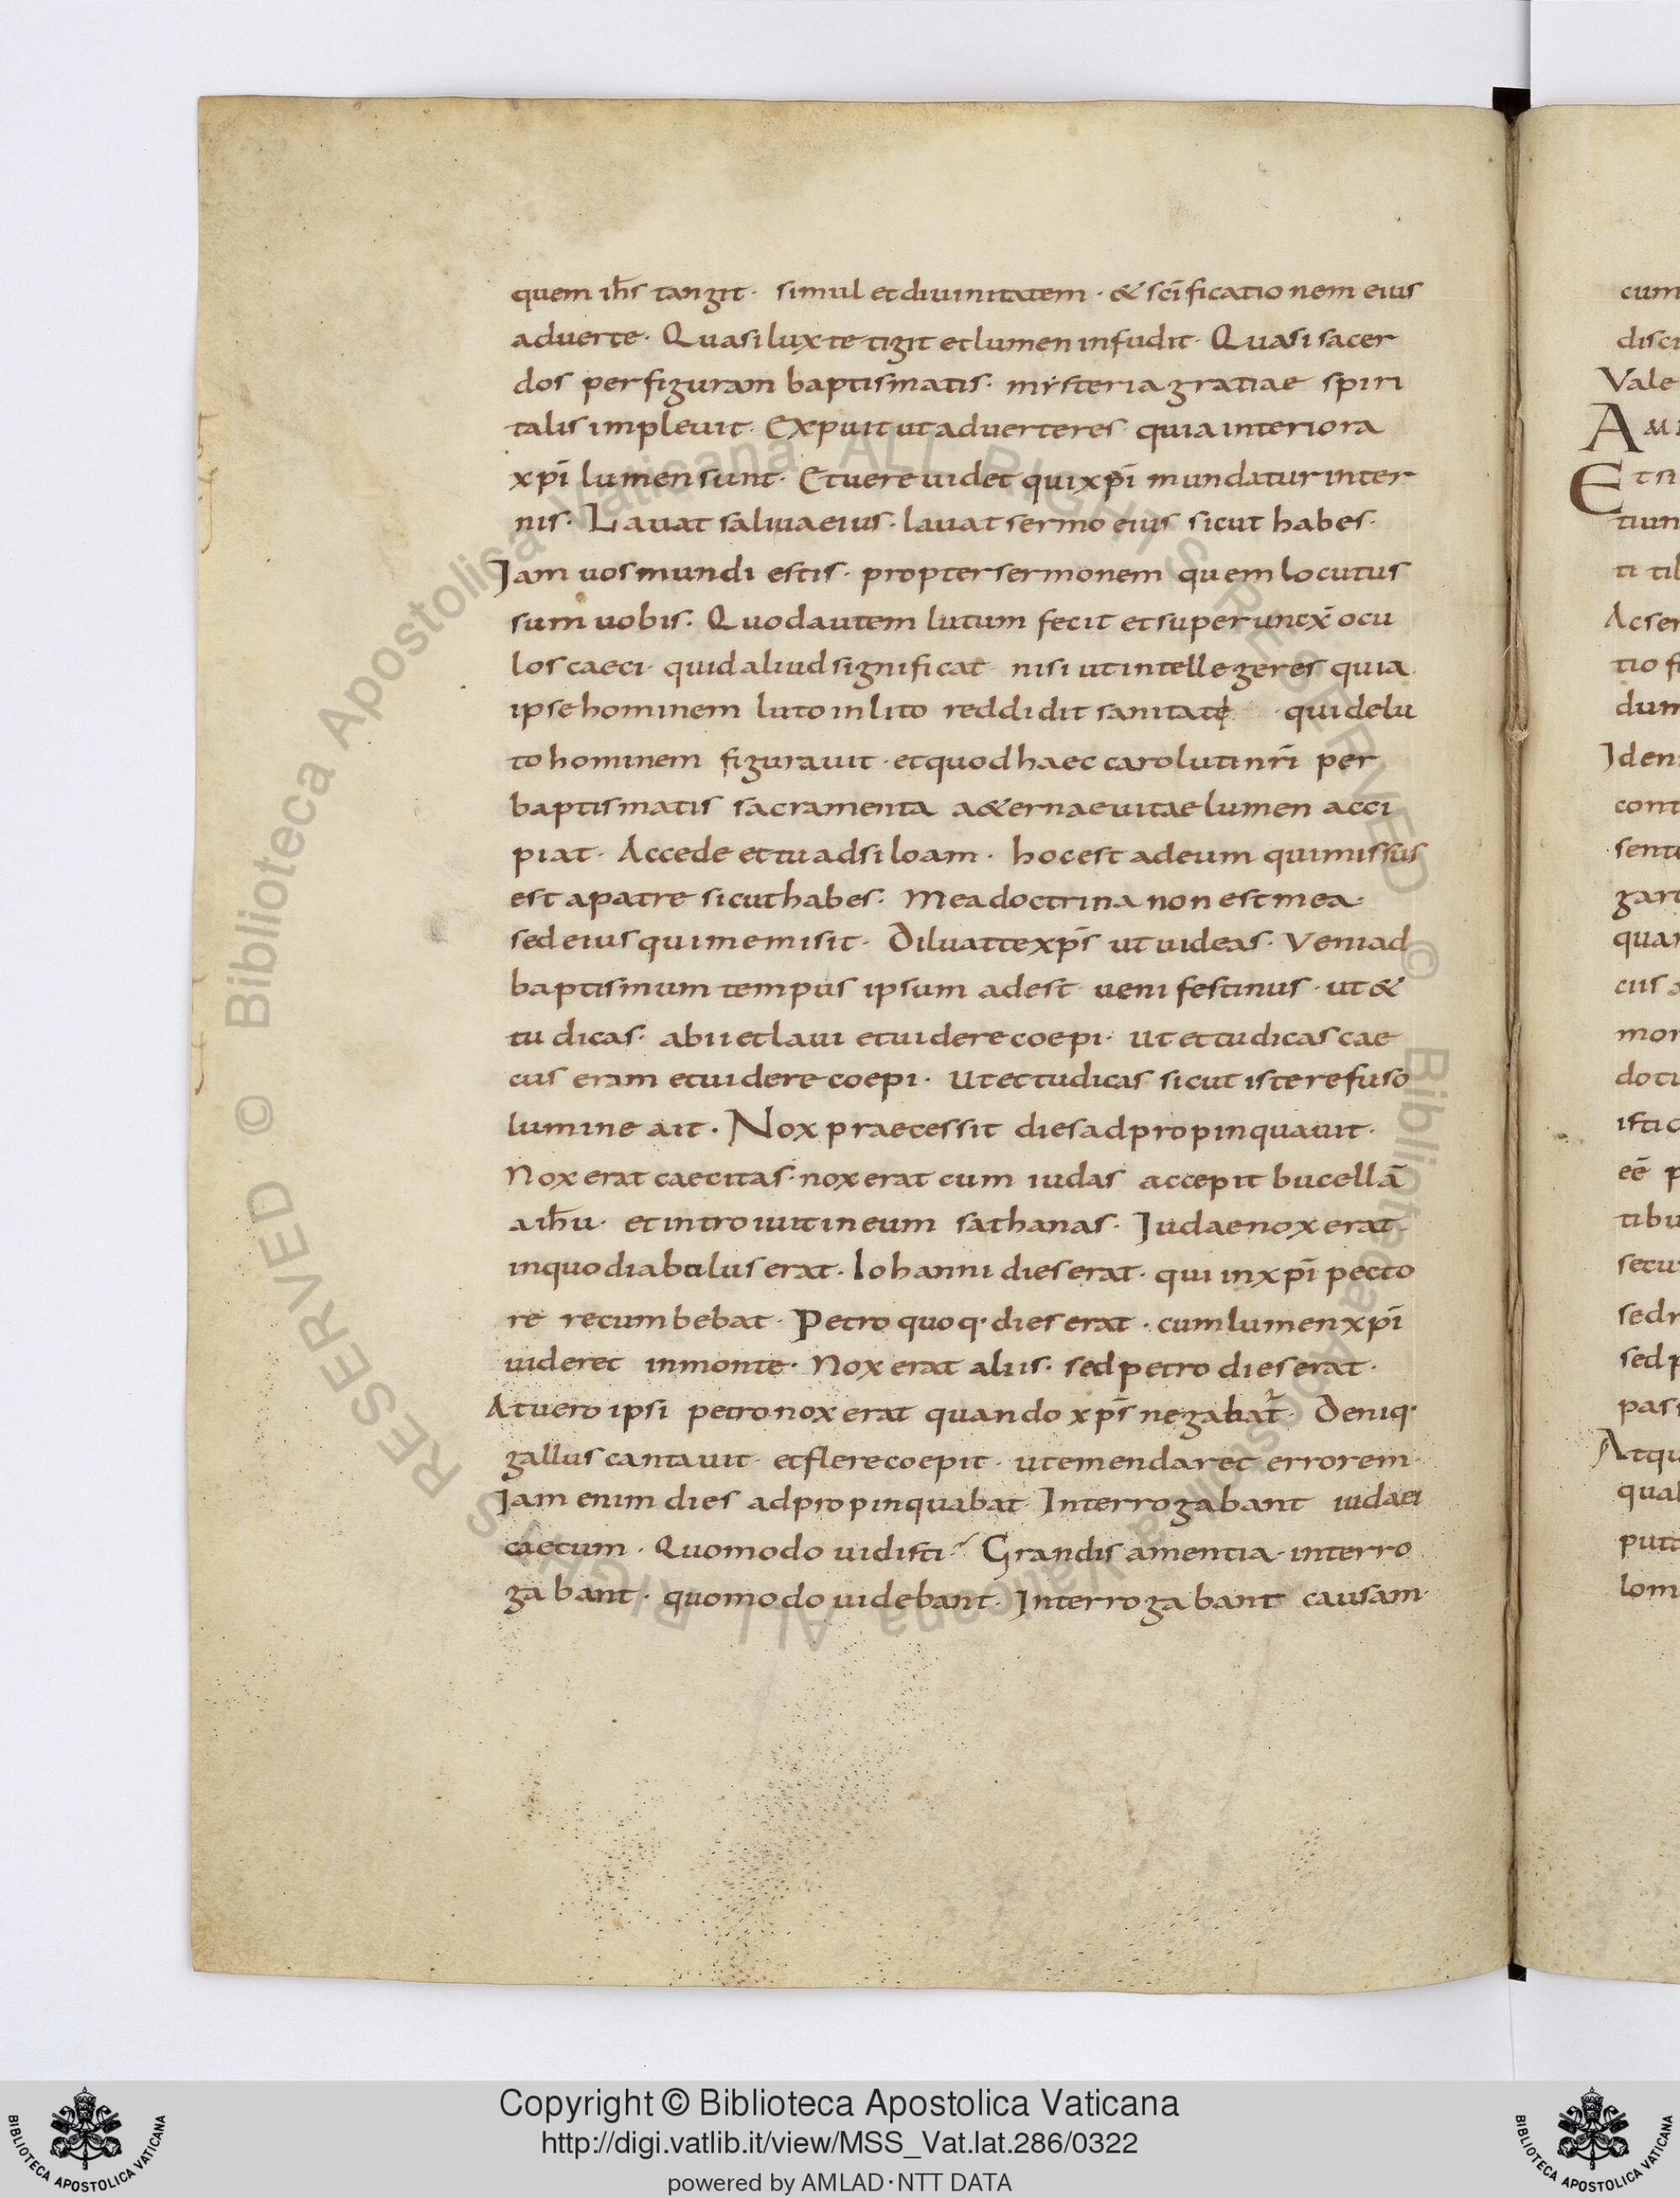 quem ihs tangit· simul et diuinitatem· & scīficationem eius
aduerte· Quasi lux te tigit et lumen infudit· Quasi sacer
dos per figuram baptismatis· mẏsteria gratiae spiri
talis impleuit· Expuit ut aduerteres quia interiora
xpī lumen sunt· Et uere uidet qui xpī mundatur inter
nis· Lauat saliua eius· lauat sermo eius sicut habes·
Iam uos mundi estis· propter sermonem quem locutus
sum uobis· Quod autem lutum fecit et superuncx̄ ocu
los caeci· quid aliud significat nisi ut intellegeres quia
ipse hominem luto inlito reddidit sanitatē qui de lu
to hominem figurauit· et quod haec caro luti nrī per
baptismatis sacramenta a&ernae uitae lumen acci
piat· Accede et tu ad siloam· hoc est ad eum qui missus
est a patre sicut habes· Mea doctrina non est mea·
sed eius qui me misit· Diluat te xps ut uideas· Veni ad
baptismum tempus ipsum adest ueni festinus· ut &
tu dicas· abii et laui et uidere coepi· Ut et tu dicas cae
cus eram et uidere coepi· Ut et tu dicas sicut iste refuso
lumine ait· Nox praecessit dies adpropinquauit·
Nox erat caecitas· nox erat cum iudas accepit bucellā
a ihu· et introiuit in eum sathanas· Iudae nox erat
in quo diabulus erat· Iohanni dies erat· qui in xpī pecto
re recumbebat· Petro quoq· dies erat· cum lumen xpī
uideret in monte· Nox erat aliis· sed petro dies erat·
At uero ipsi petro nox erat quando xps negabat̄· Deniq·
gallus cantauit· et flere coepit· ut emendaret errorem
Iam enim dies adpropinquabat Interrogabant iudaei
caecum· Quomodo uidisti· Grandis amentia· interro
gabant· quomodo uidebant· Interrogabant causam·
cum
disci
Vale
A
Et si
tiun
ti til
Acser
tio fi
dum
Iden
cont
sente
gart
quar
cus a
mor
do ti
isti c
eē p
tibu
secu
sed r
sed p
pass
Atqu
qual
puta
lom
© Biblioteca Apostolica Vaticana ALL RIGHTS RESERVED © Biblioteca Apostolica Vaticana ALL RIGHTS RESERVED
Copyright © Biblioteca Apostolica Vaticana
http://digi.vatlib.it/view/MSS_Vat.lat.286/0322
powered by AMLAD·NTT DATA
BIBLIOTECA APOSTOLICA VATICANA
BIBLIOTECA APOSTOLICA VATICANA